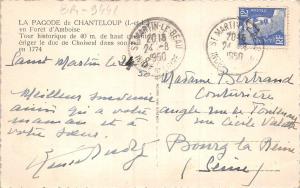 BR-9441
LA PAGODE de CHANTELOUP (I.-
en Forêt d'Amboise
Tour historique de 40 m. de haut
ériger le duc de Choiseul dans son
en 1774
ST MARTIN-LE-BEAU
20H15
24-8
1950
INDRE
ST MARTIN-LE-BEAU
1950
Saint Martin le
Meilleur souvenir
ainsi qu'à ta
maman et à
votre sœur.
Madame Bertrand
Couturière
angle rue de Fontenay
rue Cécile
Bourg la Reine
(Seine)